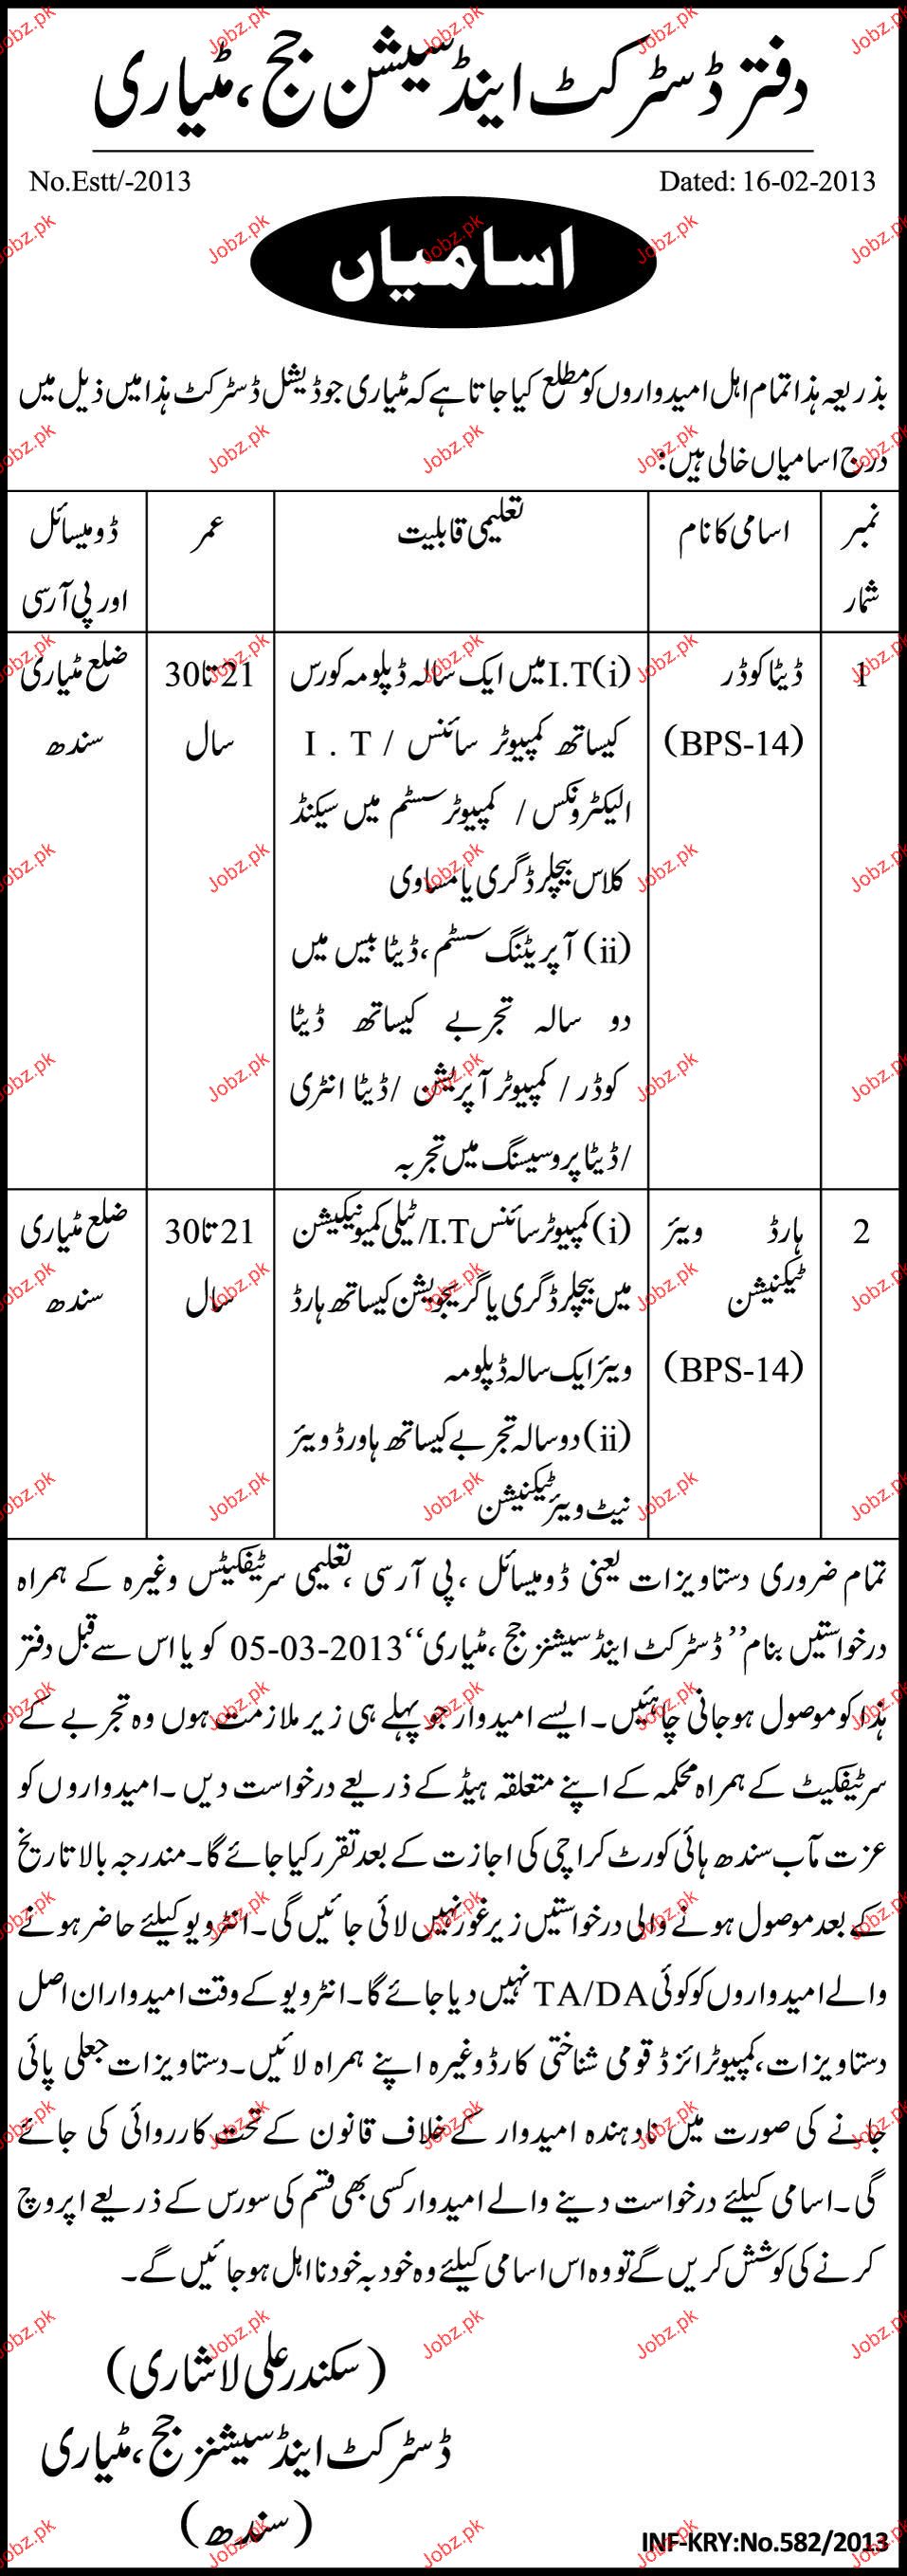 دفتر ڈسٹرکٹ اینڈ سیشن جج، مٹیاری
No.Estt/-2013
Dated: 16-02-2013
اسامیاں
بذریعہ ہذا تمام اہل امیدواروں کو مطلع کیا جاتا ہے کہ مٹیاری جوڈیشل ڈسٹرکٹ ہذا میں ذیل میں
درج اسامیاں خالی ہیں:
نمبر شمار
اسامی کا نام
تعلیمی قابلیت
عمر
ڈومیسائل
اور پی آر سی
1
ڈیٹا کوڈر
(BPS-14)
(i) I.T میں ایک سالہ ڈپلومہ کورس
کیساتھ کمپیوٹر سائنس / I . T
الیکٹرونکس / کمپیوٹر سسٹم میں سیکنڈ
کلاس بیچلر ڈگری یا مساوی
(ii) آپریٹنگ سسٹم، ڈیٹا بیس میں
دو سالہ تجربے کیساتھ ڈیٹا
کوڈر / کمپیوٹر آپریشن /ڈیٹا انٹری
/ڈیٹا پروسیسنگ میں تجربہ
21 تا 30
سال
ضلع مٹیاری
سندھ
2
ہارڈ ویئر
ٹیکنیشن
(BPS-14)
(i) کمپیوٹر سائنس I.T/ ٹیلی کمیونیکیشن
میں بیچلر ڈگری یا گریجویشن کیساتھ ہارڈ
ویئر ایک سالہ ڈپلومہ
(ii) دو سالہ تجربے کیساتھ ہاورڈ ویئر
نیٹ ویئر ٹیکنیشن
21 تا 30
سال
ضلع مٹیاری
سندھ
تمام ضروری دستاویزات یعنی ڈومیسائل ،پی آر سی ،تعلیمی سرٹیفکیٹس وغیرہ کے ہمراہ
درخواستیں بنام ”ڈسٹرکٹ اینڈ سیشنز جج ،مٹیاری“ 05-03-2013 کو یا اس سے قبل دفتر
ہذا کو موصول ہو جانی چاہئیں۔ ایسے امیدوار جو پہلے ہی زیر ملازمت ہوں وہ تجربے کے
سرٹیفکیٹ کے ہمراہ محکمہ کے اپنے متعلقہ ہیڈ کے ذریعے درخواست دیں۔ امیدواروں کو
عزت مآب سندھ ہائی کورٹ کراچی کی اجازت کے بعد تقرر کیا جائے گا۔ مندرجہ بالا تاریخ
کے بعد موصول ہونے والی درخواستیں زیر غور نہیں لائی جائیں گی۔ انٹرویو کیلئے حاضر ہونے
والے امیدواروں کو کوئی TA/DA نہیں دیا جائے گا۔ انٹرویو کے وقت امیدواران اصل
دستاویزات، کمپیوٹرائزڈ قومی شناختی کارڈ وغیرہ اپنے ہمراہ لائیں۔ دستاویزات جعلی پائی
جانے کی صورت میں نادہندہ امیدوار کے خلاف قانون کے تحت کارروائی کی جائے
گی۔ اسامی کیلئے درخواست دینے والے امیدوار کسی بھی قسم کی سورس کے ذریعے اپروچ
کرنے کی کوشش کریں گے تو وہ اس اسامی کیلئے وہ خود بہ خود نااہل ہو جائیں گے۔
(سکندر علی لاشاری)
ڈسٹرکٹ اینڈ سیشنز جج ،مٹیاری
(سندھ)
INF-KRY:No.582/2013
Jobz.pk